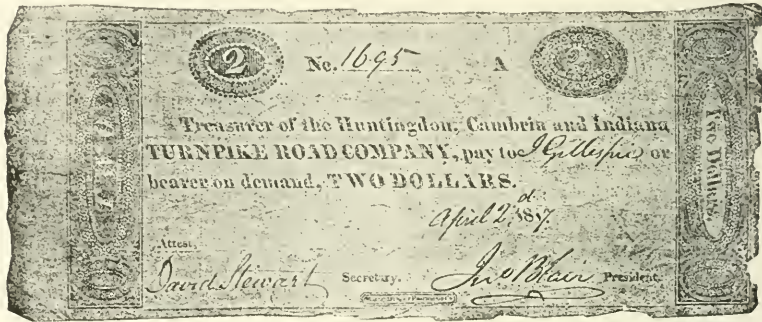 2 No. 1695 A 2
Treasurer of the Huntingdon, Cambria and Indiana
TURNPIKE ROAD COMPANY, pay to J Gillespie or
bearer on demand, TWO DOLLARS.
April 2d, 1817.
Attest,
David Stewart Secretary. Jno Blair President.
TWO
Two Dollars.